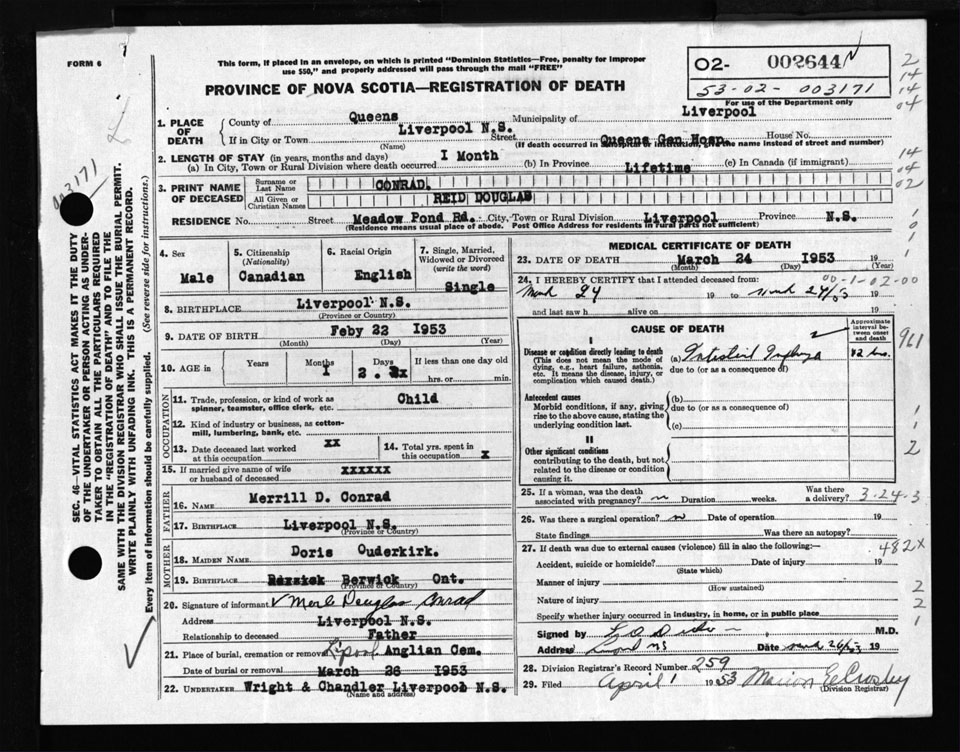 FORM 6
This form, if placed in an envelope, on which is printed "Dominion Statistics—Free, penalty for improper
use $50," and properly addressed will pass through the mail "FREE"
PROVINCE OF NOVA SCOTIA—REGISTRATION OF DEATH
02- 002644 N
53-02- 003171
For use of the Department only
2
14
14
04
003171
SEC. 46—VITAL STATISTICS ACT MAKES IT THE DUTY
OF THE UNDERTAKER OR PERSON ACTING AS UNDER-
TAKER TO OBTAIN ALL THE PARTICULARS REQUIRED
IN THE "REGISTRATION OF DEATH" AND TO FILE THE
SAME WITH THE DIVISION REGISTRAR WHO SHALL ISSUE THE BURIAL PERMIT.
WRITE PLAINLY WITH UNFADING INK. THIS IS A PERMANENT RECORD.
Every item of information should be carefully supplied. (See reverse side for instructions.)
1. PLACE OF DEATH County of Queens Municipality of Liverpool
If in City or Town Liverpool N.S. Street Queens Gen Hosp. House No.
(Name) (If death occurred in a hospital or institution, give the name instead of street and number)
2. LENGTH OF STAY (in years, months and days)
(a) In City, Town or Rural Division where death occurred I Month (b) In Province Lifetime (c) In Canada (if immigrant)
14
04
02
3. PRINT NAME OF DECEASED Surname or Last Name CONRAD.
All Given or Christian Names REID DOUGLAS
RESIDENCE No. Street Meadow Pond Rd. City, Town or Rural Division Liverpool Province N.S.
(Residence means usual place of abode. Post Office Address for residents in rural parts not sufficient)
4. Sex Male
5. Citizenship (Nationality) Canadian
6. Racial Origin English
7. Single, Married, Widowed or Divorced (write the word) Single
8. BIRTHPLACE Liverpool N.S.
(Province or Country)
9. DATE OF BIRTH Feby 22 I953
(Month) (Day) (Year)
10. AGE in Years Months I Days 2. If less than one day old
hrs. or min.
OCCUPATION
11. Trade, profession, or kind of work as
spinner, teamster, office clerk, etc. Child
12. Kind of industry or business, as cotton-
mill, lumbering, bank, etc.
13. Date deceased last worked
at this occupation xx
14. Total yrs. spent in
this occupation X
15. If married give name of wife
or husband of deceased xxxxxx
FATHER
16. NAME Merrill D. Conrad
17. BIRTHPLACE Liverpool N.S.
(Province or Country)
MOTHER
18. MAIDEN NAME Doris Ouderkirk.
19. BIRTHPLACE Berwick Ont.
(Province or Country)
20. Signature of informant Merle Douglas Conrad
Address Liverpool N.S.
Relationship to deceased Father
21. Place of burial, cremation or removal L'pool Anglian Cem.
Date of burial or removal March 26 I953
22. UNDERTAKER Wright & Chandler Liverpool N.S.
(Name and address)
MEDICAL CERTIFICATE OF DEATH
23. DATE OF DEATH March 24 I953 19
(Month) (Day) (Year)
24. I HEREBY CERTIFY that I attended deceased from: 00-1-02-00
March 24 19 to March 24/53 19
and last saw h alive on 19
CAUSE OF DEATH
Approximate interval between onset and death
I
Disease or condition directly leading to death
(This does not mean the mode of
dying, e.g., heart failure, asthenia,
etc. It means the disease, injury, or
complication which caused death.)
(a) 12 hrs.
due to (or as a consequence of)
Antecedent causes
Morbid conditions, if any, giving
rise to the above cause, stating the
underlying condition last.
(b)
due to (or as a consequence of)
(c)
II
Other significant conditions
contributing to the death, but not
related to the disease or condition
causing it.
1
1
2
25. If a woman, was the death
associated with pregnancy? Duration weeks. Was there
a delivery? 3-24-3
26. Was there a surgical operation? Date of operation 19
State findings Was there an autopsy?
27. If death was due to external causes (violence) fill in also the following:— 482X
Accident, suicide or homicide? Date of injury 19
(State which)
Manner of injury
(How sustained)
Nature of injury
Specify whether injury occurred in industry, in home, or in public place
2
2
1
Signed by M.D.
Address NS Date March 26/53 19
28. Division Registrar's Record Number 259
29. Filed April 1 1953 Marion E Crosby
(Division Registrar)